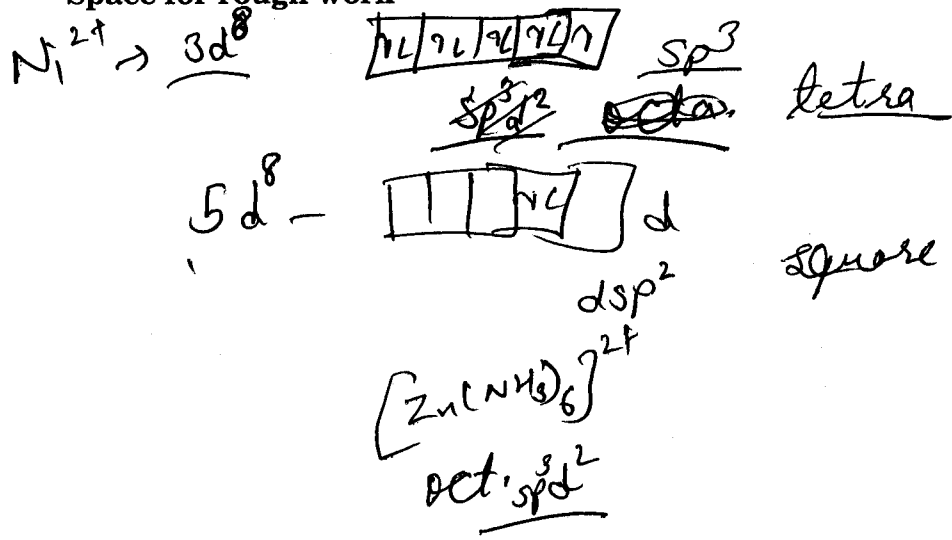 Space for rough work
Ni²⁺ → 3d⁸ sp³
sp³d² octa. tetra
5d⁸ – d
square
dsp²
[Zn(NH₃)₆]²⁺
oct. sp³d²